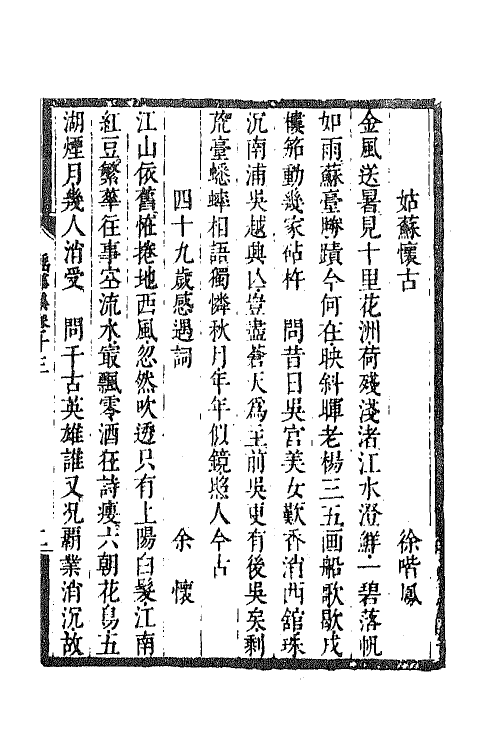 姑蘇懷古 徐喈鳳
金風送暑見十里花洲荷殘淺渚江水澄鮮一碧落帆
如雨蘇臺勝蹟今何在映斜暉老楊三五画船歌歇戍
樓笳動幾家砧杵 問昔日吳宮美女歎香消西舘珠
沉南浦吳越興亾豈盡蒼天為主前吳更有後吳矣剩
荒臺蟋蟀相語獨憐秋月年年似鏡照人今古
四十九歲感遇詞 余懷
江山依舊怪捲地西風忽然吹透只有上陽白髮江南
紅豆繁華往事空流水最飄零酒狂詩瘦六朝花鳥五
湖煙月幾人消受 問千古英雄誰又況霸業消沉故
卷十三
二